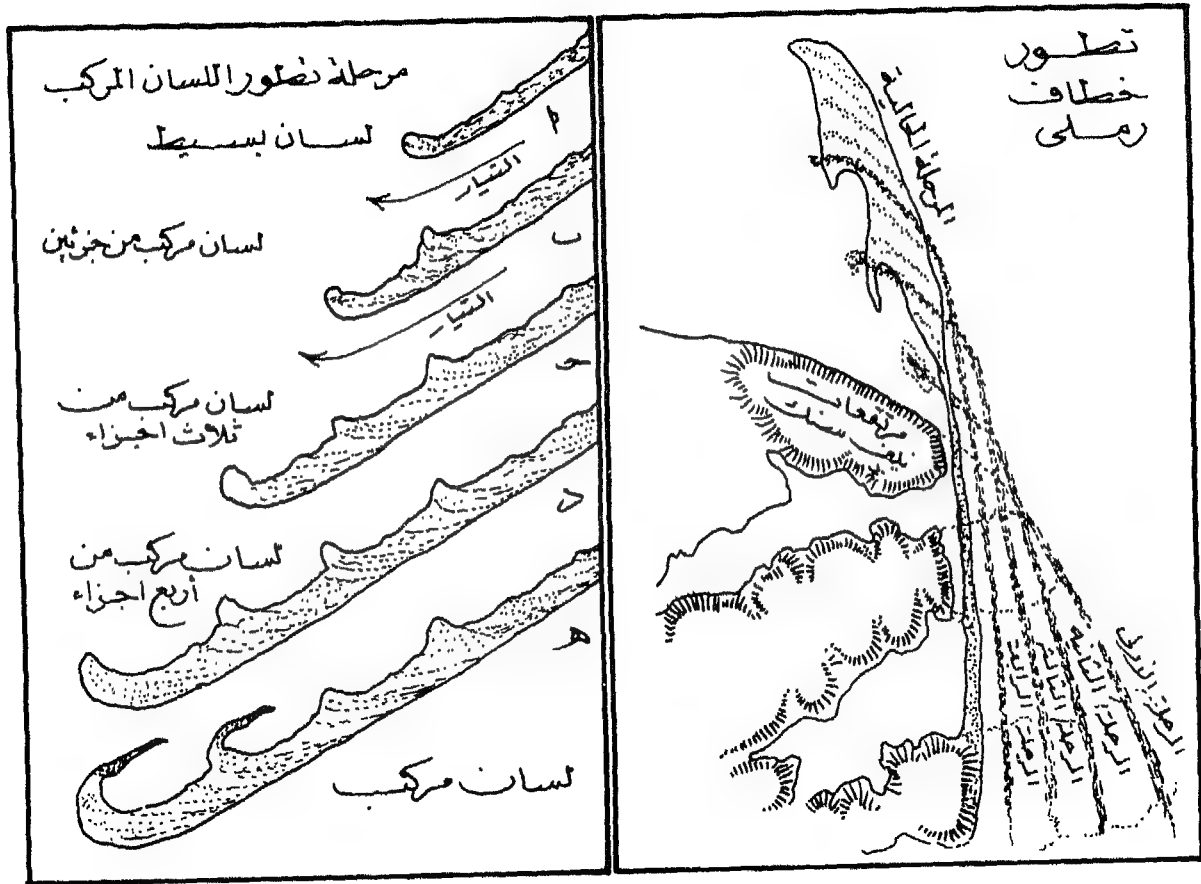 تطور
خطاف
رملى
المرحلة الحالية
مرتفعات
المرحلة الأولى
المرحلة الثانية
المرحلة الثالثة
المرحلة الرابعة
مرحلة تطور اللسان المركب
لسان بسيط
م
التيار
لسان مركب من جزئين
ب
التيار
حـ
لسان مركب من
ثلاث اجزاء
د
لسان مركب من
أربع اجزاء
هـ
لسان مركب